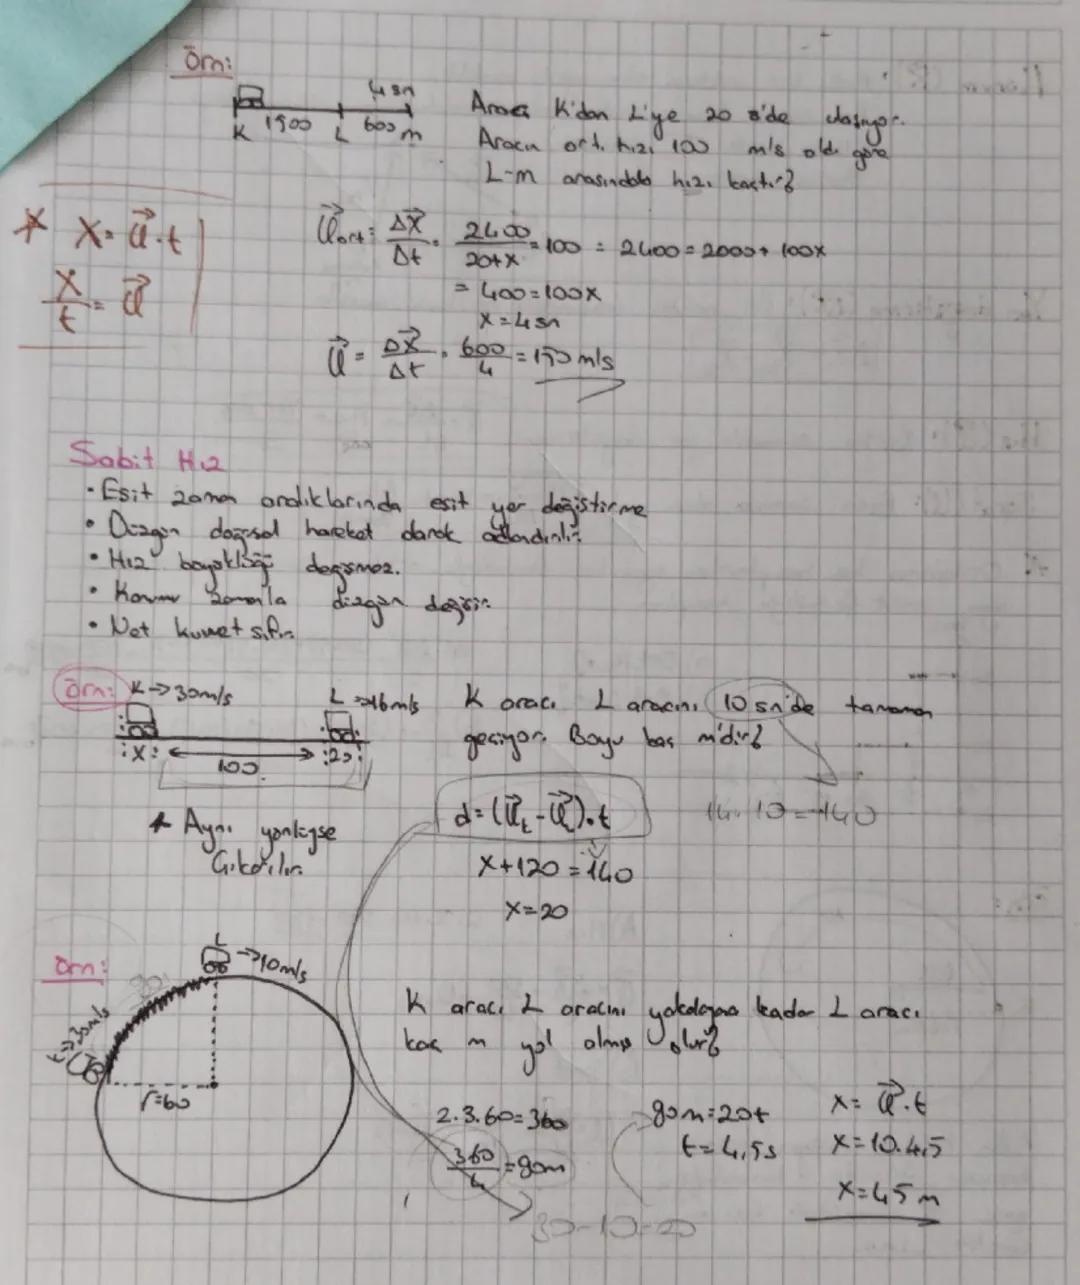 Örn:
4 sn
K 1900 L 600 m
Aracı K'dan L'ye 20 s'de ulaşıyor.
Aracın ort. hızı 100 m/s old. göre
L-m arasındaki hızı kaçtır?
* X = ϑ⃗ . t
X/t = ϑ⃗
ϑ⃗ort = ΔX⃗/Δt = 2400/20+x = 100 = 2400 = 2000 + 100x
= 400 = 100x
x = 4 sn
ϑ⃗ = ΔX⃗/Δt = 600/4 = 150 m/s
Sabit Hız
• Eşit zaman aralıklarında eşit yer değiştirme
• Düzgün doğrusal hareket olarak adlandırılır.
• Hız büyüklüğü değişmez.
• Konum zamanla düzgün değişir.
• Net kuvvet sıfır.
Örn: K → 30m/s L → 16m/s
:X: 100 :20:
K aracı L aracını 10 sn'de tamamen
geçiyor. Boyu kaç m'dir?
* Aynı yönlüyse
Çıkarılır.
d = (ϑ⃗ - ϑ⃗).t
14.10 = 140
X + 120 = 140
X = 20
Örn:
L → 10m/s
90
K → 30m/s
r = 60
K aracı L aracını yakalayana kadar L aracı
kaç m yol almış olur?
2.3.60 = 360
360/4 = 90m
90m = 20t
t = 4,5s
30 - 10 = 20
X = ϑ⃗ . t
X = 10.4,5
X = 45 m